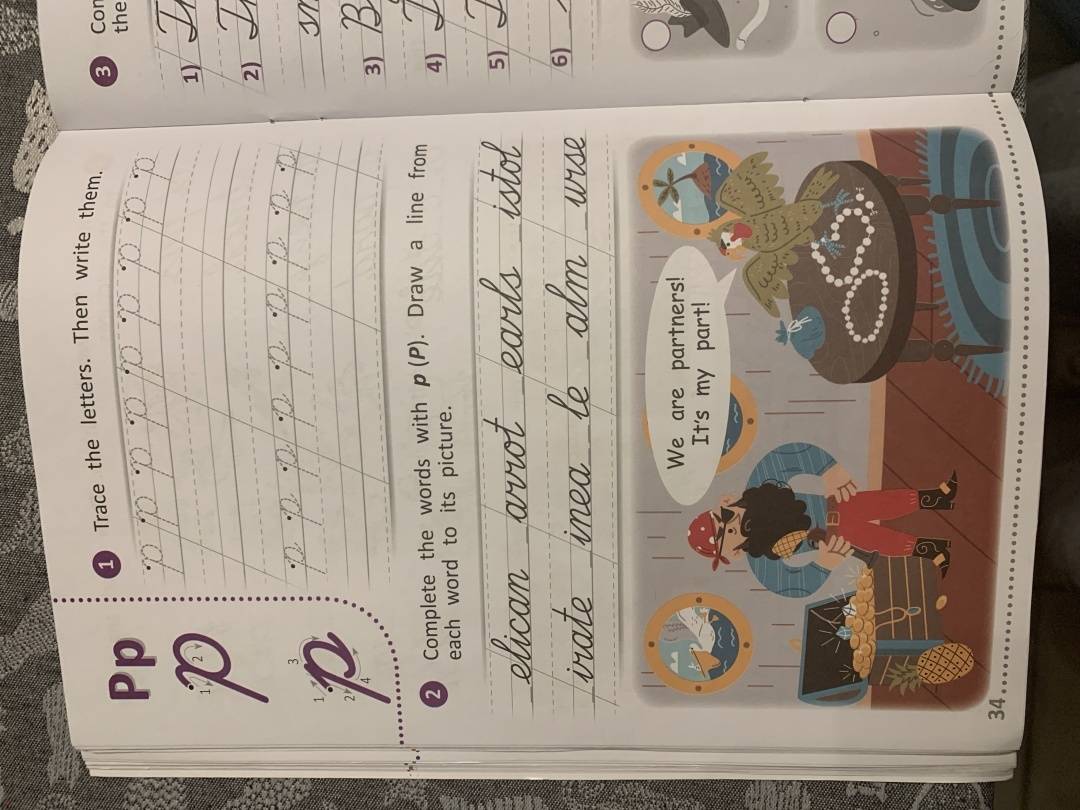 Pp
p
1
2
p
1
2
3
4
1 Trace the letters. Then write them.
p p p p p p p p p
p p p p p p p p
2 Complete the words with p (P). Draw a line from
each word to its picture.
_elican _arrot _earls _istol
_irate _inea_ _le _alm _urse
We are partners!
It's my part!
34
3
the
1)
2)
3) B
4)
5)
6)